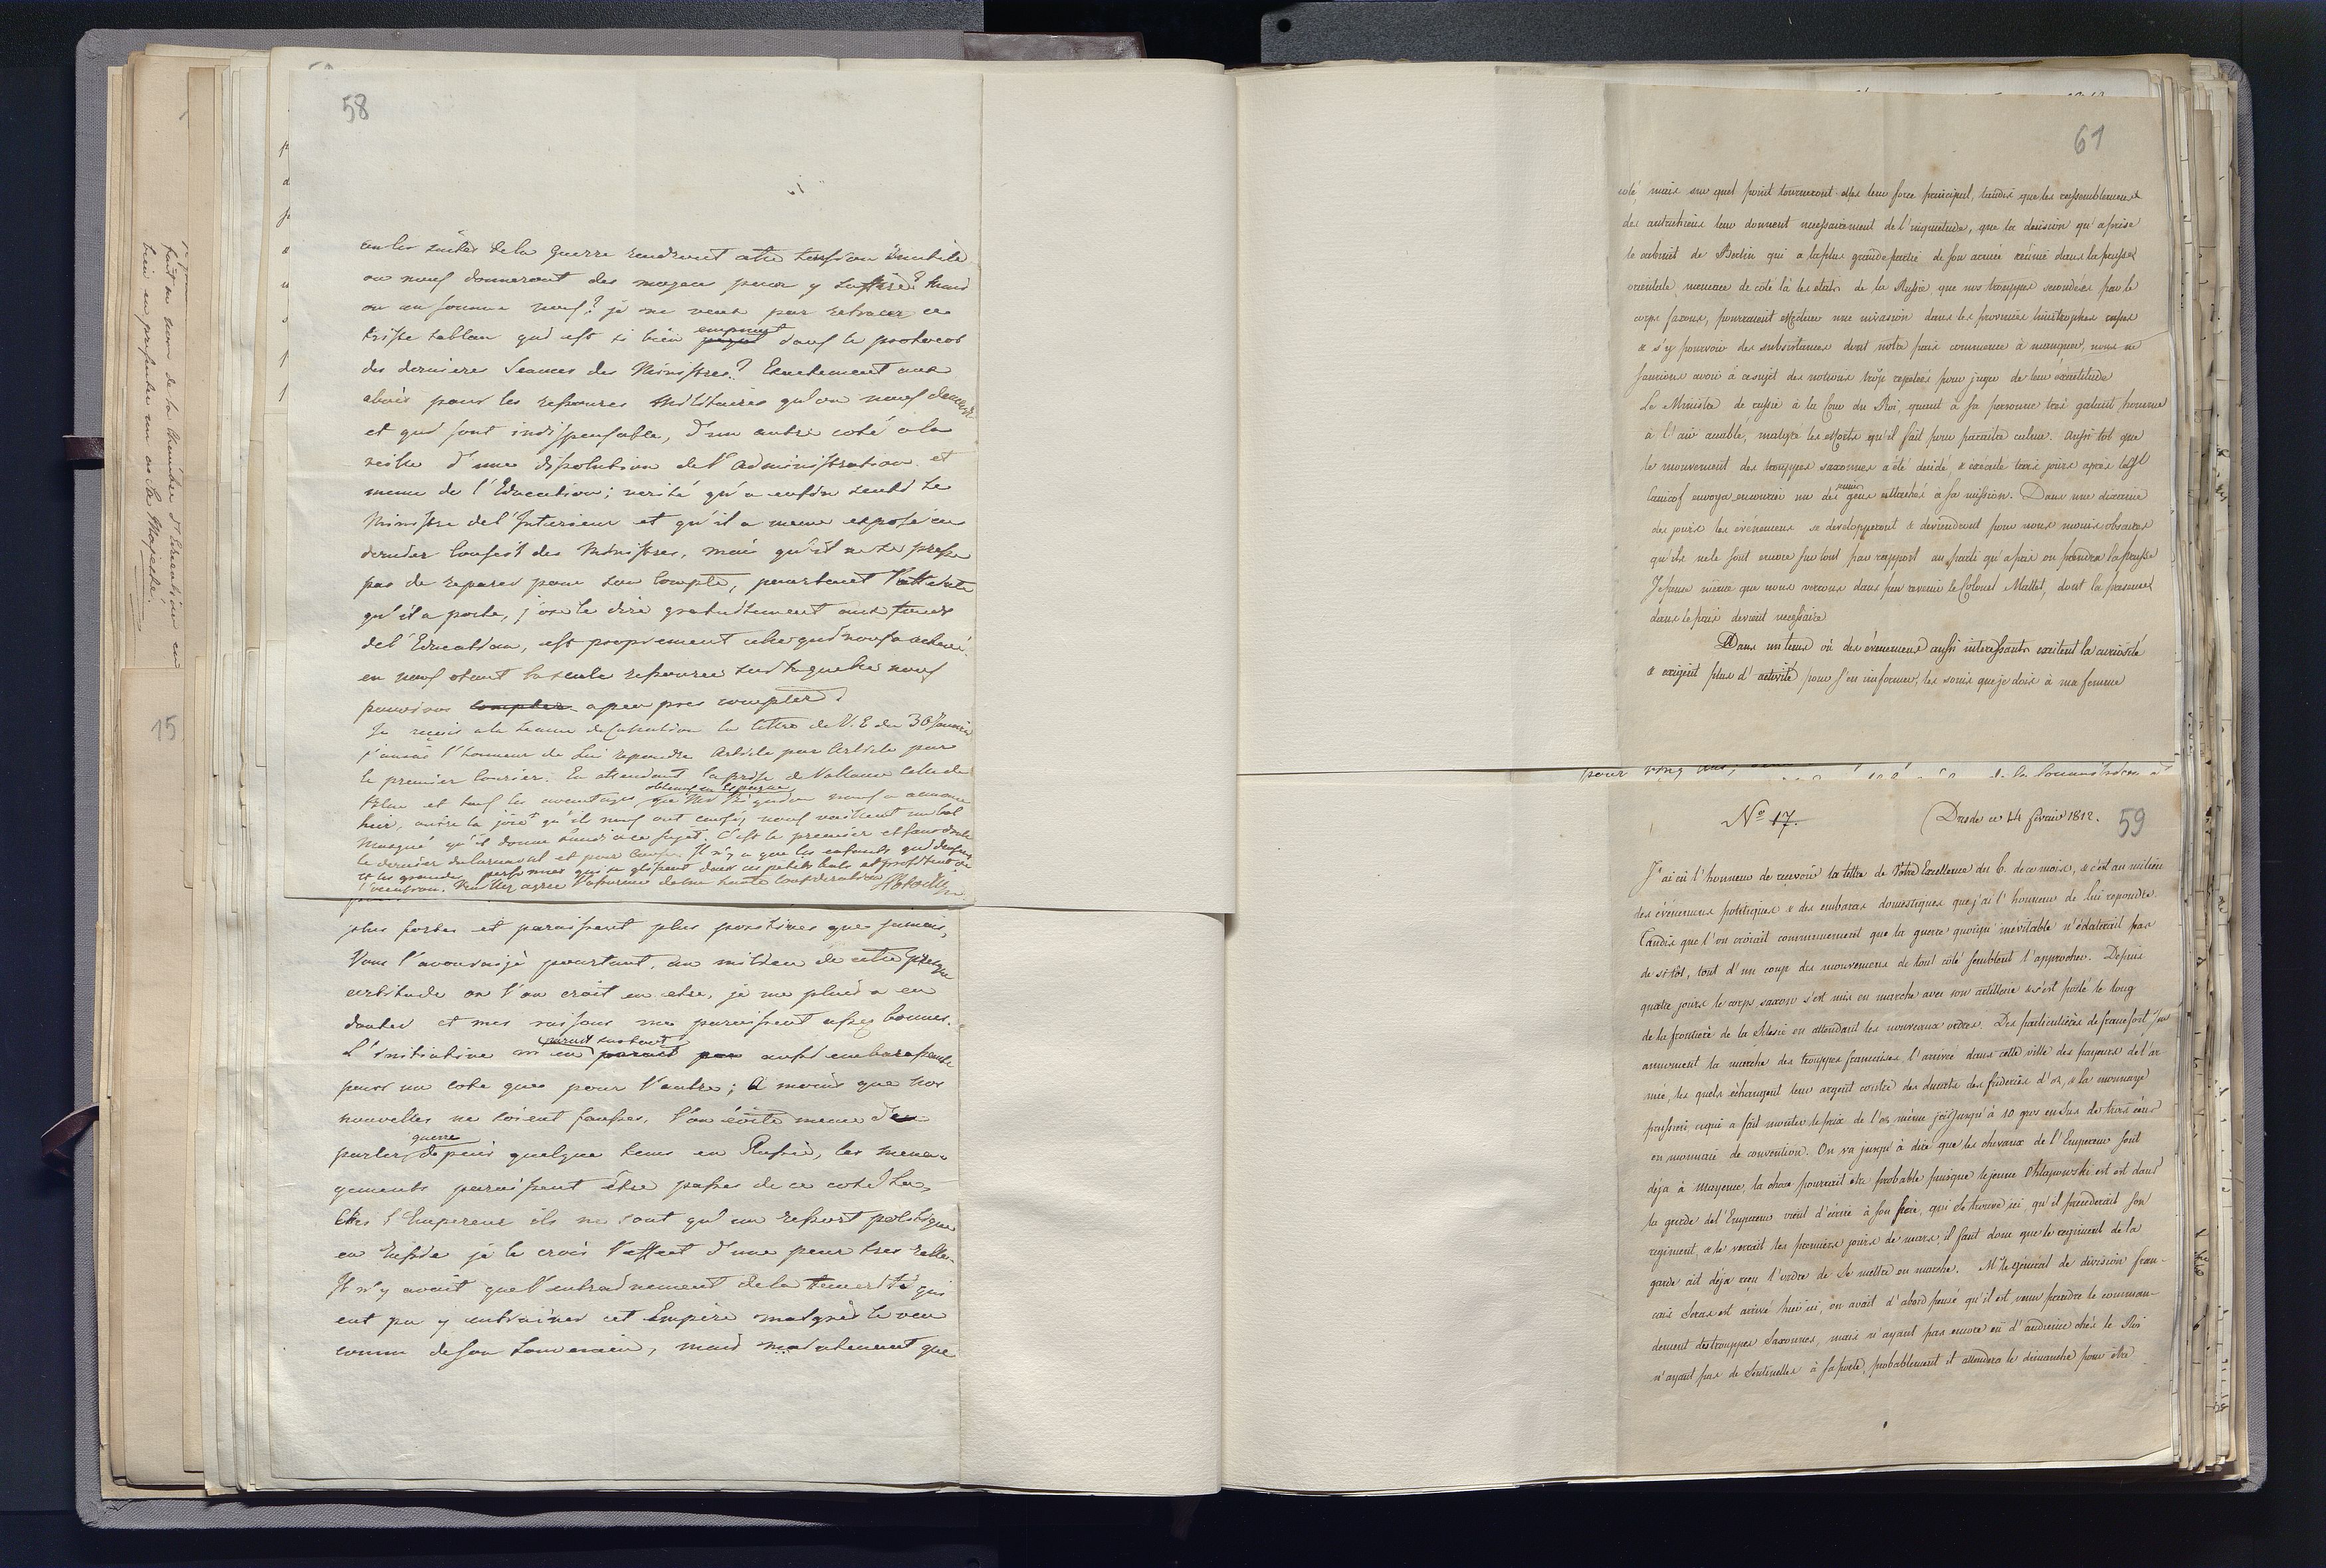 58
ou les suites de la guerre rendront cette tension inutile
ou nous donneront des moyens pour y suffire? mais
ou en sommes nous? je ne veux pas retracer ce
triste tableau qui est si bien empreint dans le protocol
des dernieres Seances des Ministres? Exactement aux
abois pour les ressources Militaires qu'on nous demande
et qui sont indispensable, d'un autre coté a la
veille d'une dissolution de l'administration et
meme de l'Education; verité qu'a enfin senti le
Ministre de l'Interieur et qu'il a meme exposé au
dernier Conseil des Ministres, mais qu'il ne se presse
pas de reparer pour son compte, pourtant l'atteinte
qu'il a porte, j'ose le dire gratuitement aux fonds
de l'Education, est proprement celle qui nous a achevé
en nous otant la seule ressource sur laquelle nous
pouvions compter a peu pres compter.
Je reçois a la Seance la lettre de V. E. du 30 Janvier
j'aurai l'honneur de Lui repondre Article par Article par
le premier Courier. En attendant la prise de Valence celle de
et tous les avantages obtenus en Espagne que Mr Bignon nous a annoncé
hier, outre la joie qu'ils nous ont causé, nous vaillent un bal
Masqué qu'il donne Lundi a ce sujet. C'est le premier et sans doute
le dernier du Carnaval et pour cause. Il n'y a que les enfants qui dansent
et les grandes personnes qui se glissent dans ces petits bals et profitent de
l'occasion. Veuillez agreer l'assurance de ma haute consideration
plus fortes et paraissent plus positives que jamais,
Vous l'avouerai je pourtant, au milieu de cette presque
certitude ou l'on croit en etre, je me plais a en
douter et mes raisons me paraissent assez bonnes.
L'initiative m'en parait surtout parait pas aussi embarassante
pour un coté que pour l'autre; A moins que nos
nouvelles ne soient fausses, l'on évite meme de
parler guerre depuis quelque tems en Russie, les mena-
gements paraissent être passés de ce coté la,
Chés l'Empereur ils ne sont qu'un ressort politique
en Russie je le crois l'effect d'une peur tres reelle.
Il n'y avait que l'entrainement de la temerité qui
eut pu y entrainer cet Empire malgré le voeu
connu de son Souverain, mais maintenant que
faut au nom de la Chambre d'Education en
bien en presenter un au Sa Majesté.
15
61
coté, mais sur quel point tourneront elles leur force principal, tandis que les rassemblemens
des autrichiens leur donnent necessairement de l'inquietude, que la decision qu'a prise
le cabinet de Berlin qui a la plus grande partie de son armée réunie dans la prusse
orientale, menace de coté là les etats de la Russie que nos trouppes secondées par le
corps saxons, pourraient effectuer une invasion dans les provinces limitrophes russes
& s'y pourvoir des subsistances dont notre pais commence à manquer, nous ne
saurions avoir à ce sujet des notions trop repetées pour juger de leur exactitude
Le Ministre de russie à la Cour du Roi, quant à sa personne tres galant homme
à l'air accablé, malgré les efforts qu'il fait pour paraitre calme. Aussi tot que
le mouvement des trouppes saxonnes a été decidé, & executé trois jours apres le Gl
Canicof envoya en courier un des jeunes gens attachés à sa mission. Dans une dixaine
des jours les evénemens se developperont & deviendront pour nous moins obscures
qu'ils ne le sont encore surtout par rapport au parti qu'a pris ou prendra la prusse
Je pense même que nous verrons dans peu revenir le Colonel Mallet, dont la presence
dans le pais devient necessaire
Dans un tems où des évenemens aussi interessants excitent la curiosité
& exigent plus d'activité pour s'en informer, les soins que je dois à ma femme
No 17. Dresde ce 14 fevrier 1812. 59
J'ai eù l'honneur de reçevoir la lettre de Votre Excellence du 6. de ce mois, & c'est au milieu
des événemens politiques & des embaras domestiques que j'ai l'honneur de lui repondre.
Tandis que l'on croiait communement que la guerre quoiqu'inévitable n'éclaterait pas
de si tôt, tout d'un coup des mouvemens de tout côté semblent l'approcher. Depuis
quatre jours le corps saxon s'est mis en marche avec son artillerie & s'est posté le long
de la frontière de la Silesie en attendant les nouveaux ordres. Des particulières de francfort s/o
announent la marche des trouppes francaises, l'arrivée dans cette ville des payeurs de l'ar
mée, les quels échangent leur argent contre des ducats des frideries d'or, & la monnaye
prussien, ce qui a fait monter le prix de l'or même ici jusqu'à 10 gros en sus de trois écus
en monnaie de convention. On va jusqu'à dire que les chevaux de l'Empereur sont
déja à Mayence, la chose pourrait etre probable puisque le jeune Chlapowski est dans
la garde de l'Empereur vient d'écrire à son frère, qui se trouve ici, qu'il prenderait son
regiment, & le verrait les premiers jours de mars, il faut donc que le regiment de la
garde ait déja reçu l'ordre de se mettre en marche. Mr le général de division fran-
cais Seras est arrivé hier ici, on avait d'abord pensé qu'il est venu prendre le comman-
dement des trouppes Saxonnes, mais n'ayant pas encore eû d'audience chés le Roi
n'ayant pas de Sentinelles à sa porte, probablement il attendera le dimanche pour être